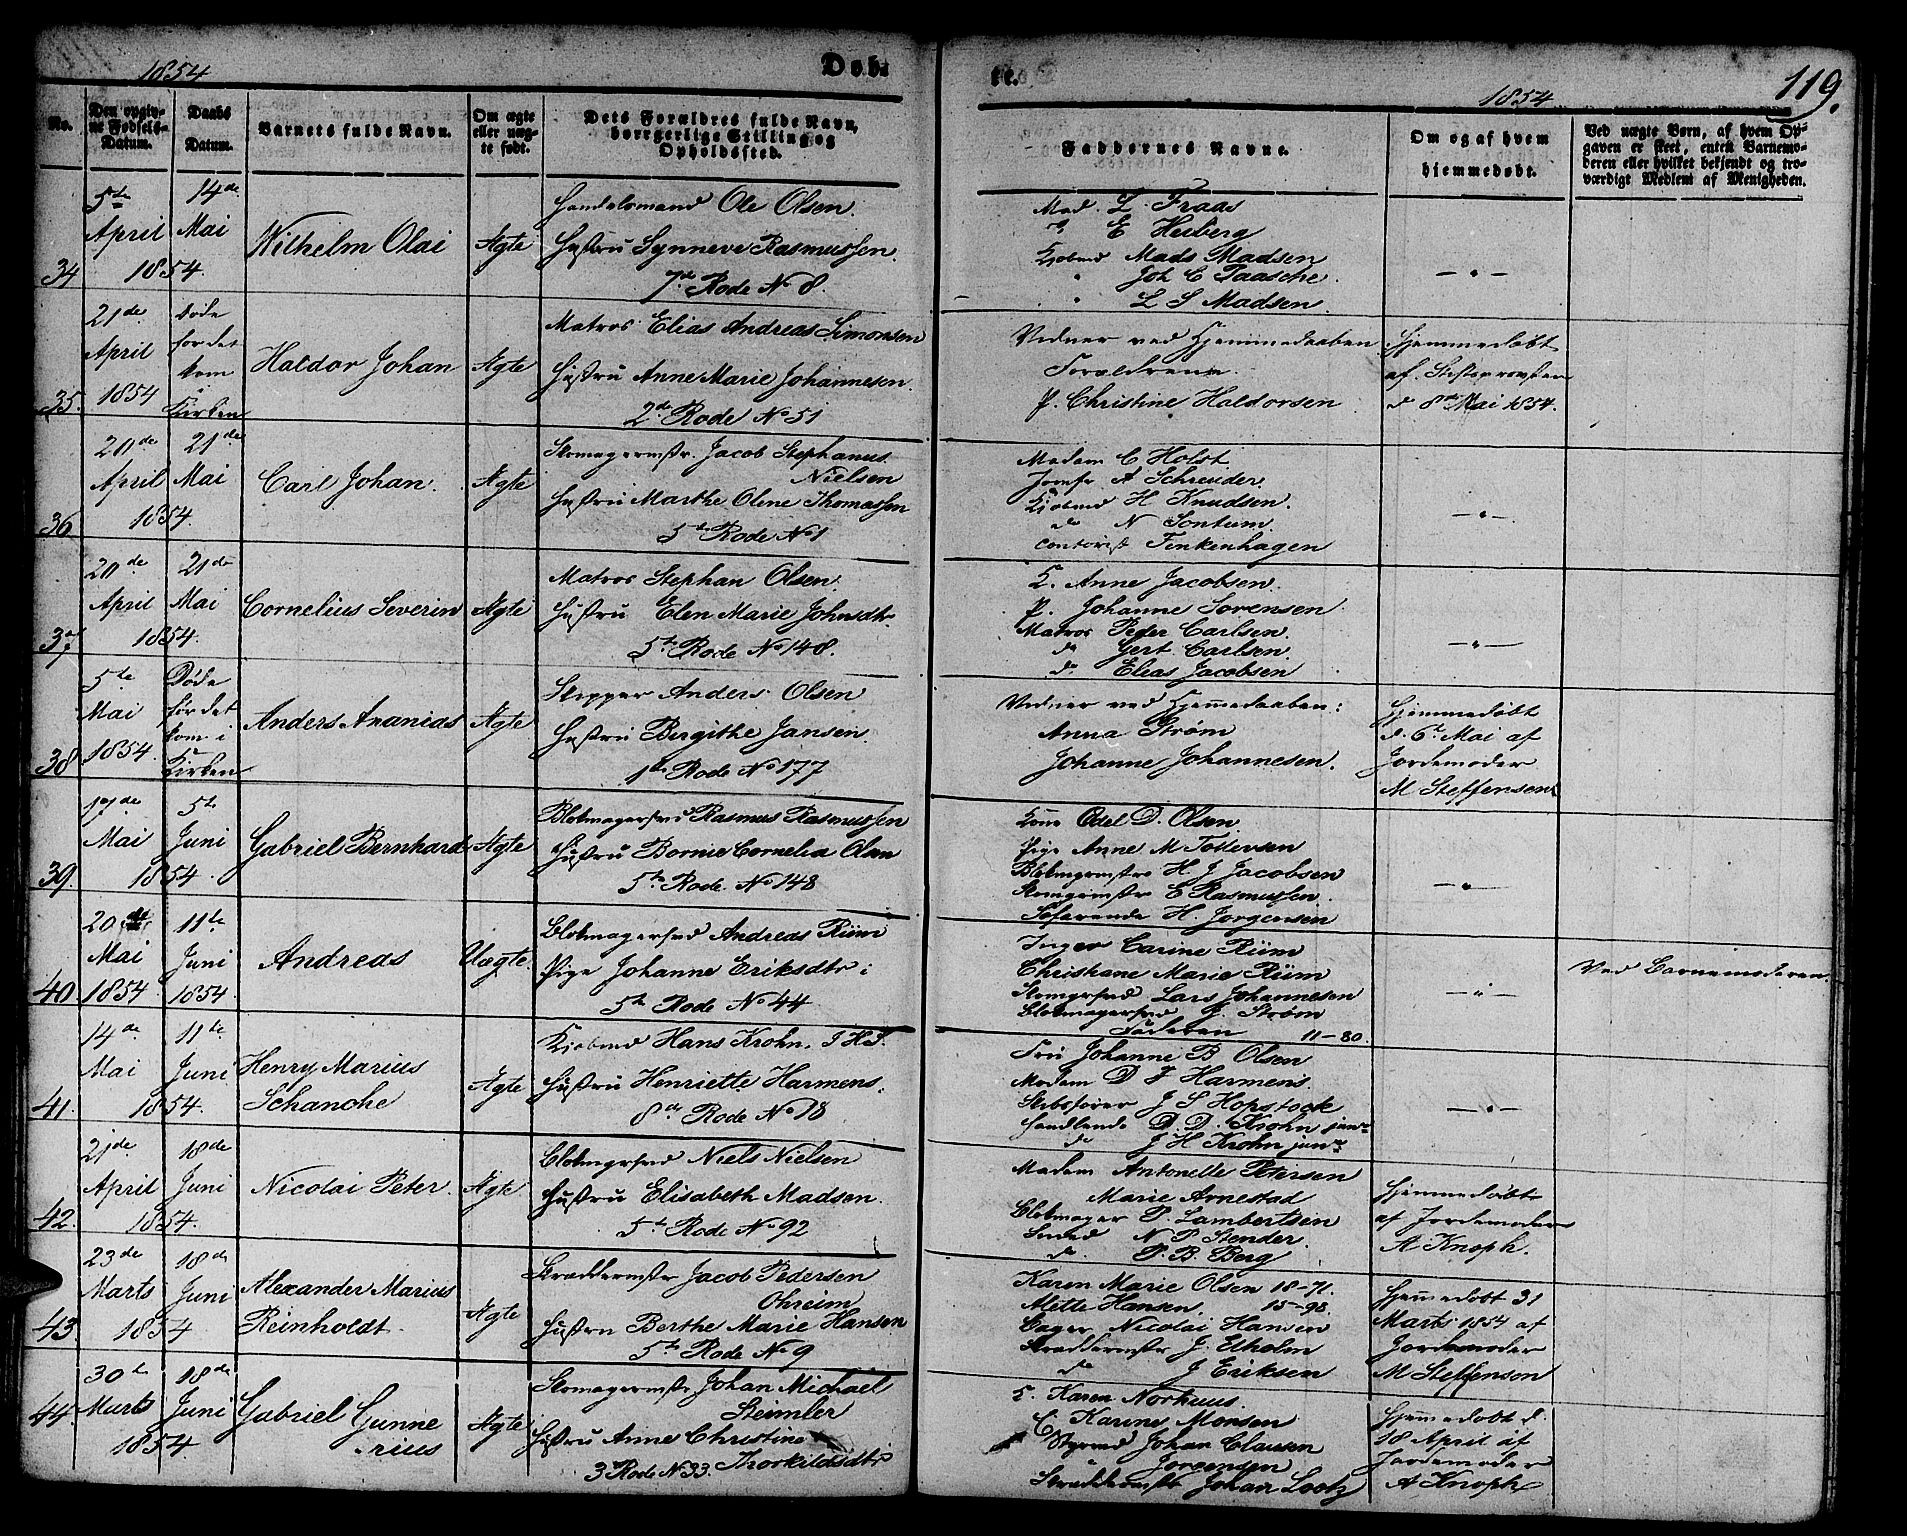 1854
Døb-
te.
1854
119.
No.
Den opgiv-
ne Fødsels-
Datum.
Daabs
Datum.
Barnets fulde Navn.
Om ægte
eller uæg-
te født.
Dets Forældres fulde Navn,
borgerlige Stilling og
Opholdssted.
Faddernes Navne.
Om og af hvem
hjemmedøbt.
Ved uægte Børn, af hvem Op-
gaven er skeet, enten Barnemo-
deren eller hvilket bekjendt og tro-
værdigt Medlem af Menigheden.
34
5te April 1854.
14de Mai
Wilhelm Olai
Ægte
Handelsmand Ole Olsen.
Hustru Synneve Rasmussen
7de Rode No 8.
Mad. L. Fraas
" E Heiberg
Kjøbmd Mads Madsen
" Joh C Paasche.
" L S Madsen.
— " —
35.
21de April 1854
døde før det kom i Kirken
Haldor Johan
Ægte
Matros Elias Andreas Simonsen
Hustru Anne Marie Johannesen.
2de Rode No 51
Vidner ved Hjemmedaaben
Forældrene.
P. Christine Haldorsen
Hjemmedøbt
af Stiftsprovsten
d 8de Mai 1854.
36
20de April 1854.
21de Mai
Carl Johan.
Ægte
Skomagermstr. Jacob Stephanus
Nielsen
Hustru Marthe Oline Thomassen
5te Rode No 1
Madam C Holst
Jomfr A Schreuder.
Kjøbmd H Knudsen.
do N Sontum.
Contorist Finkenhagen
— " —
37
20de April 1854.
21de Mai
Cornelius Severin
Ægte
Matros Stephan Olsen.
Hustru Elen Marie Johnsdtr
5te Rode No 148.
K. Anne Jacobsen.
P. Johanne Sørensen
Matros Peder Carlsen.
do Gert Carlsen.
do Elias Jacobsen
— " —
38
5te Mai 1854.
Døde før det kom i Kirken
Anders Ananias
Ægte
Skipper Anders Olsen
Hustru Birgithe Jansen.
1te Rode No 177
Vidner ved Hjemmedaaben:
Anna Strøm
Johanne Johannesen.
Hjemmedøbt
d. 6te Mai af
Jordemoder
M Steffensen
39.
17de Mai 1854.
5te Juni
Gabriel Bernhard
Ægte
Blokmagersvd Rasmus Rasmussen
Hustru Bornie Cornelia Olsen
5te Rode. No 148
Kone Odel D. Olsen.
Pige Anne M Tollevsen
Blokmgrmstr H J Jacobsen
Skomgrmstr E Rasmussen.
Søfarende H. Jørgensen
— " —
40
20de Mai 1854
11te Juni 1854
Andreas
Uægte.
Blokmagersvd Andreas Riim
Pige Johanne Eriksdtr i
5te Rode No 44
Inger Carine Riim
Christiane Marie Riim
Skomgrsvd Lars Johannesen
Blokmagersvd J. Strøm
Faderen 11-80.
— " —
Ved Barnemoderen.
41.
14de Mai 1854.
11te Juni
Henry Marius
Schanche
Ægte
Kjøbmd Hans Krohn. S HS.
Hustru Henriette Harmens.
8de Rode No 18
Fru Johanne B Olsen
Madam D J Harmens.
Skibsfører J S Hopstock
Handlende D. D. Krohn junr
do J H Krohn junr
— " —
42.
21de April 1854.
18de Juni
Nicolai Peter.
Ægte
Blokmgrsvd Niels Nielsen
Hustru Elisabeth Madsen.
5te Rode No 92
Madam Antonelle Petersen
Marie Arnestad
Blokmager P. Lambertsen
Smed N P Stender.
do P. B. Berg
Hjemmedøbt
af Jordemoder
A Knoph.
43
23de Marts 1854
18de Juni
Alexander Marius
Reinholdt.
Ægte
Skræddermstr Jacob Pedersen
Ohreim
Hustru Berthe Marie Hansen
5te Rode No 9
Karen Marie Olsen 18-71.
Mette Hansen. 15-98.
Bager Nicolai Hansen
Skræddermstr J. Elholm
do J Eriksen
Hjemmedøbt 31
Marts 1854 af
Jordemoder
M Steffensen
44.
30te Marts 1854
18de Juni
Gabriel Gunne
-rius
Ægte
Skomagermstr Johan Michael
Steimler
Hustru Anne Christine
Thorkildsdtr
3 Rode No 33.
K. Karen Norhuus.
C. Karine Monsen
Styrmd Johan Clausen
Jørgensen
Skræddermstr Johan Lootz
Hjemmedøbt d.
18 April af
Jordemoder
A Knoph